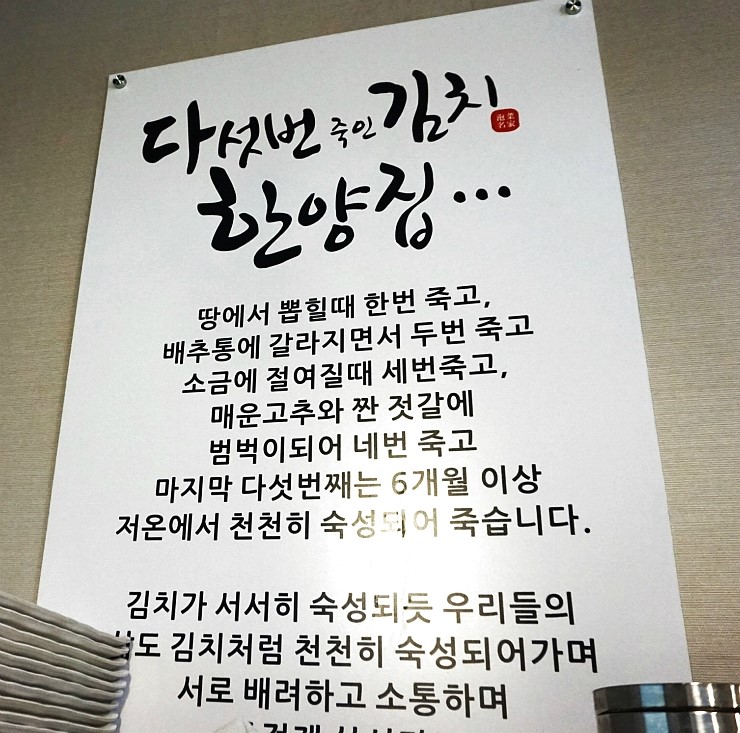 다섯번 죽인 김치
한양집...
땅에서 뽑힐때 한번 죽고,
배추통에 갈라지면서 두번 죽고
소금에 절여질때 세번죽고,
매운고추와 짠 젓갈에
범벅이되어 네번 죽고
마지막 다섯번째는 6개월 이상
저온에서 천천히 숙성되어 죽습니다.
김치가 서서히 숙성되듯 우리들의
김치처럼 천천히 숙성되어가며
서로 배려하고 소통하며